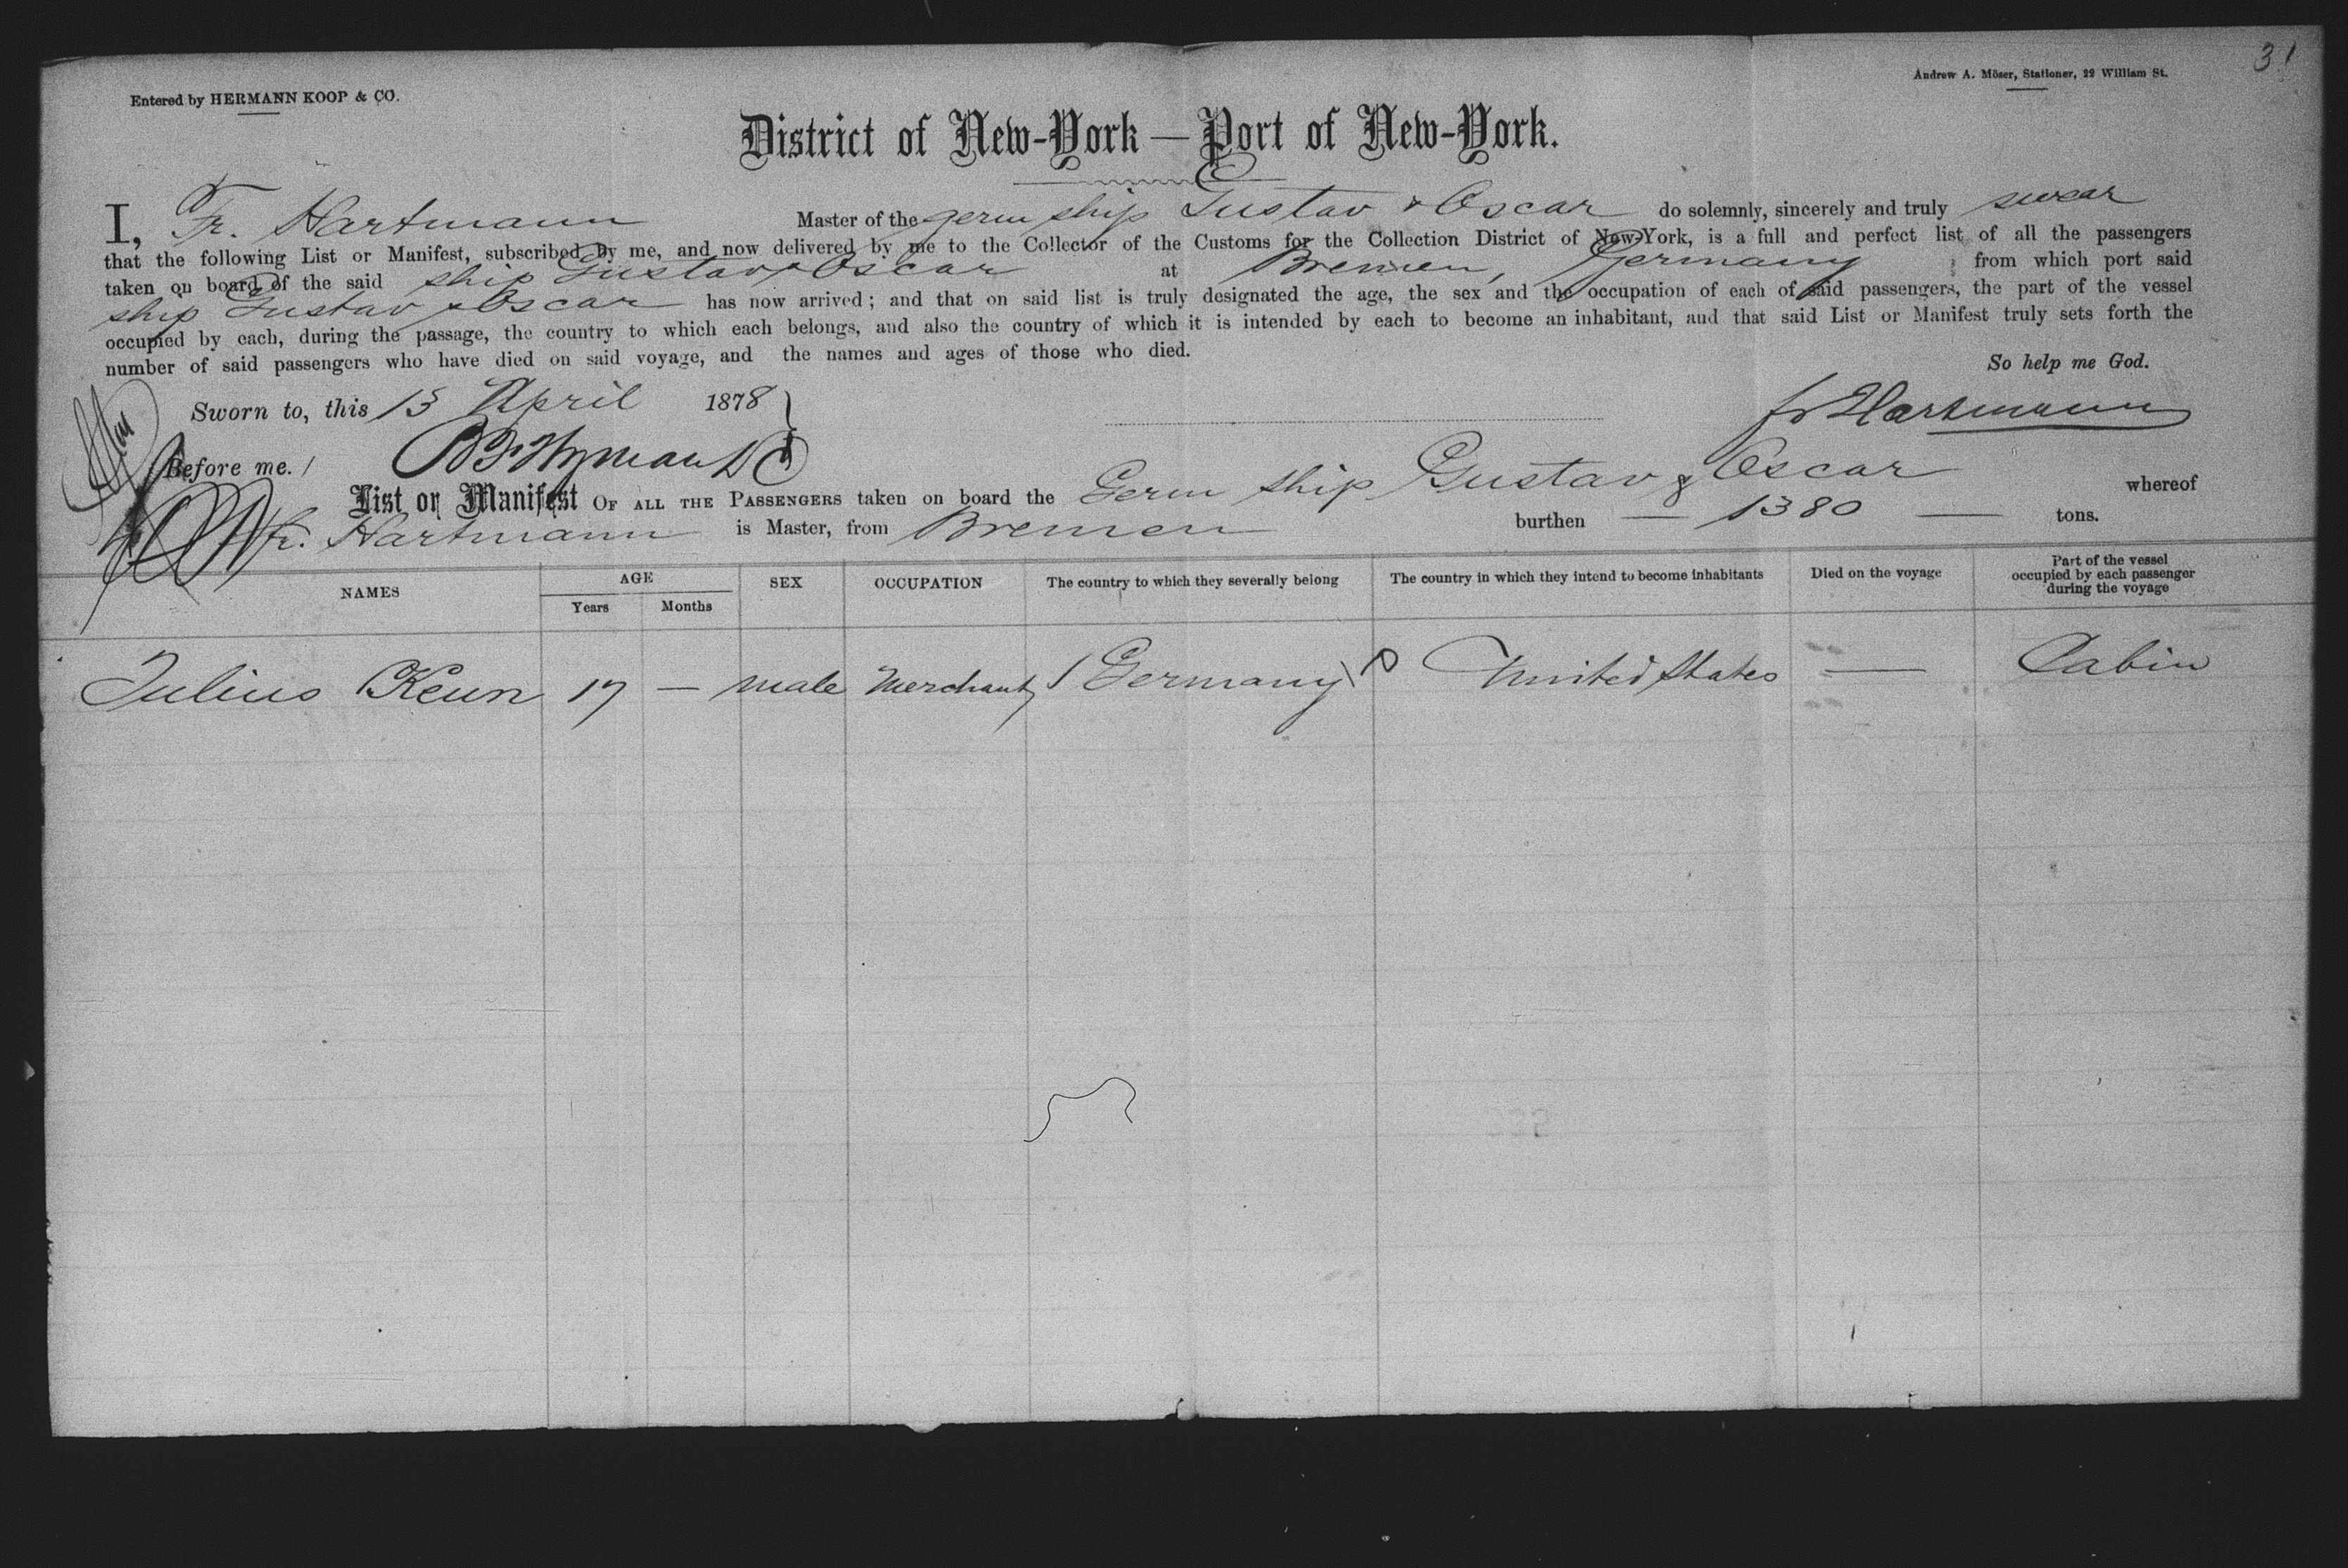 31
Entered by HERMANN KOOP & CO.
Andrew A. Möser, Stationer, 22 William St.
District of New-York — Port of New-York.
I, Fr. Hartmann Master of the germ ship Gustav & Oscar do solemnly, sincerely and truly swear
that the following List or Manifest, subscribed by me, and now delivered by me to the Collector of the Customs for the Collection District of New-York, is a full and perfect list of all the passengers
taken on board of the said ship Gustav & Oscar at Bremen, Germany from which port said
ship Gustav & Oscar has now arrived; and that on said list is truly designated the age, the sex and the occupation of each of said passengers, the part of the vessel
occupied by each, during the passage, the country to which each belongs, and also the country of which it is intended by each to become an inhabitant, and that said List or Manifest truly sets forth the
number of said passengers who have died on said voyage, and the names and ages of those who died.
So help me God.
Sworn to, this 13 April 1878
fr Hartmann
Before me.
List or Manifest OF ALL THE PASSENGERS taken on board the Germ ship Gustav & Oscar whereof
Fr. Hartmann is Master, from Bremen burthen — 1380 — tons.
NAMES AGE Years Months SEX OCCUPATION The country to which they severally belong The country in which they intend to become inhabitants Died on the voyage Part of the vessel occupied by each passenger during the voyage
Julius Keun 17 — male Merchant Germany United States — Cabin